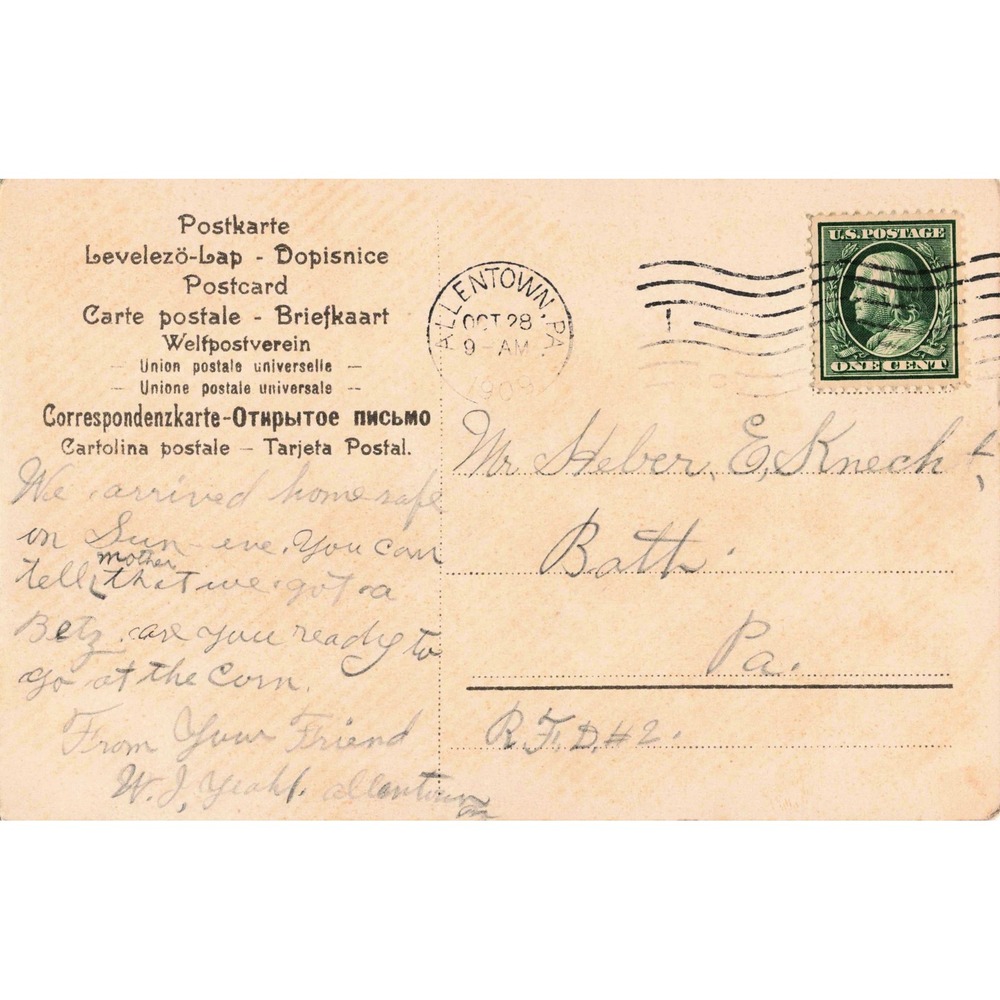 Postkarte
Levelezö-Lap - Dopisnice
Postcard
Carte postale - Briefkaart
Weltpostverein
— Union postale universelle —
— Unione postale universale —
Correspondenzkarte-Открытое письмо
Cartolina postale — Tarjeta Postal.
ALLENTOWN, PA.
OCT 28
9 - AM
1909
U.S. POSTAGE
ONE CENT
We arrived home safe
on Sun-eve. You can
tell mother that we got a
Betz. are you ready to
go at the corn.
From Your Friend
W. J. Allentown
Mr. Heber. E. Knecht
Bath.
Pa.
R. F. D. #2.